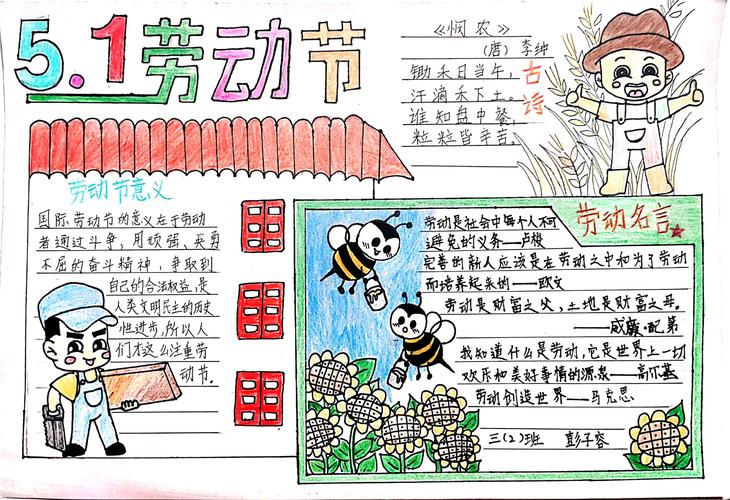 5.1劳动节
《悯农》
(唐) 李绅
锄禾日当午，
汗滴禾下土。
谁知盘中餐，
粒粒皆辛苦。
古诗
劳动节意义
国际劳动节的意义在于劳动
者通过斗争，用顽强、英勇
不屈的奋斗精神，争取到
自己的合法权益，是
人类文明民主的历史
性进步，所以人
们才这么注重劳
动节。
劳动名言
劳动是社会中每个人不可
避免的义务——卢梭
完善的新人应该是在劳动之中和为了劳动
而培养起来的——欧文
劳动是财富之父，土地是财富之母。
——威廉·配第
我知道什么是劳动，它是世界上一切
欢乐和美好事情的源泉——高尔基
劳动创造世界——马克思
三(2)班 彭子蓉